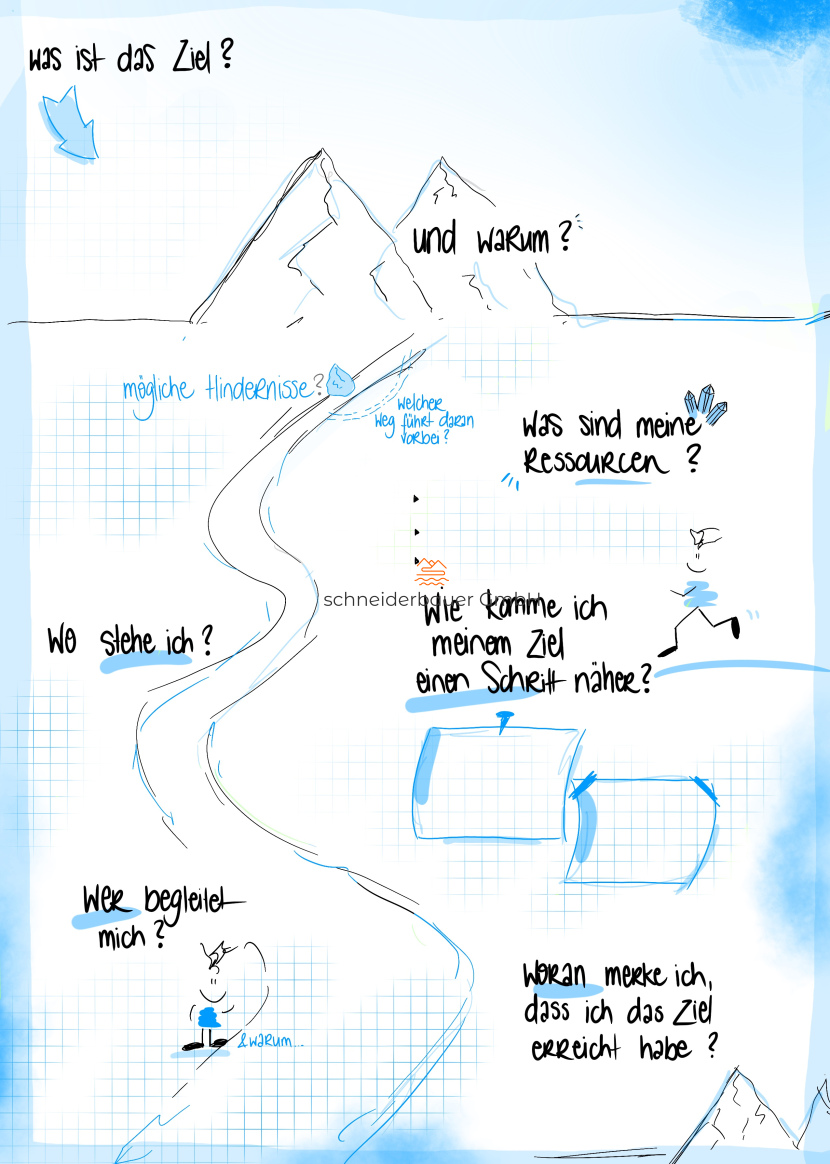 was ist das Ziel?
und warum?
mögliche Hindernisse?
welcher
weg führt daran
vorbei?
was sind meine
Ressourcen ?
schneiderbauer GmbH
Wie komme ich
meinem Ziel
einen Schritt näher?
Wo stehe ich?
Wer begleitet
mich?
& warum...
Woran merke ich,
dass ich das Ziel
erreicht habe ?